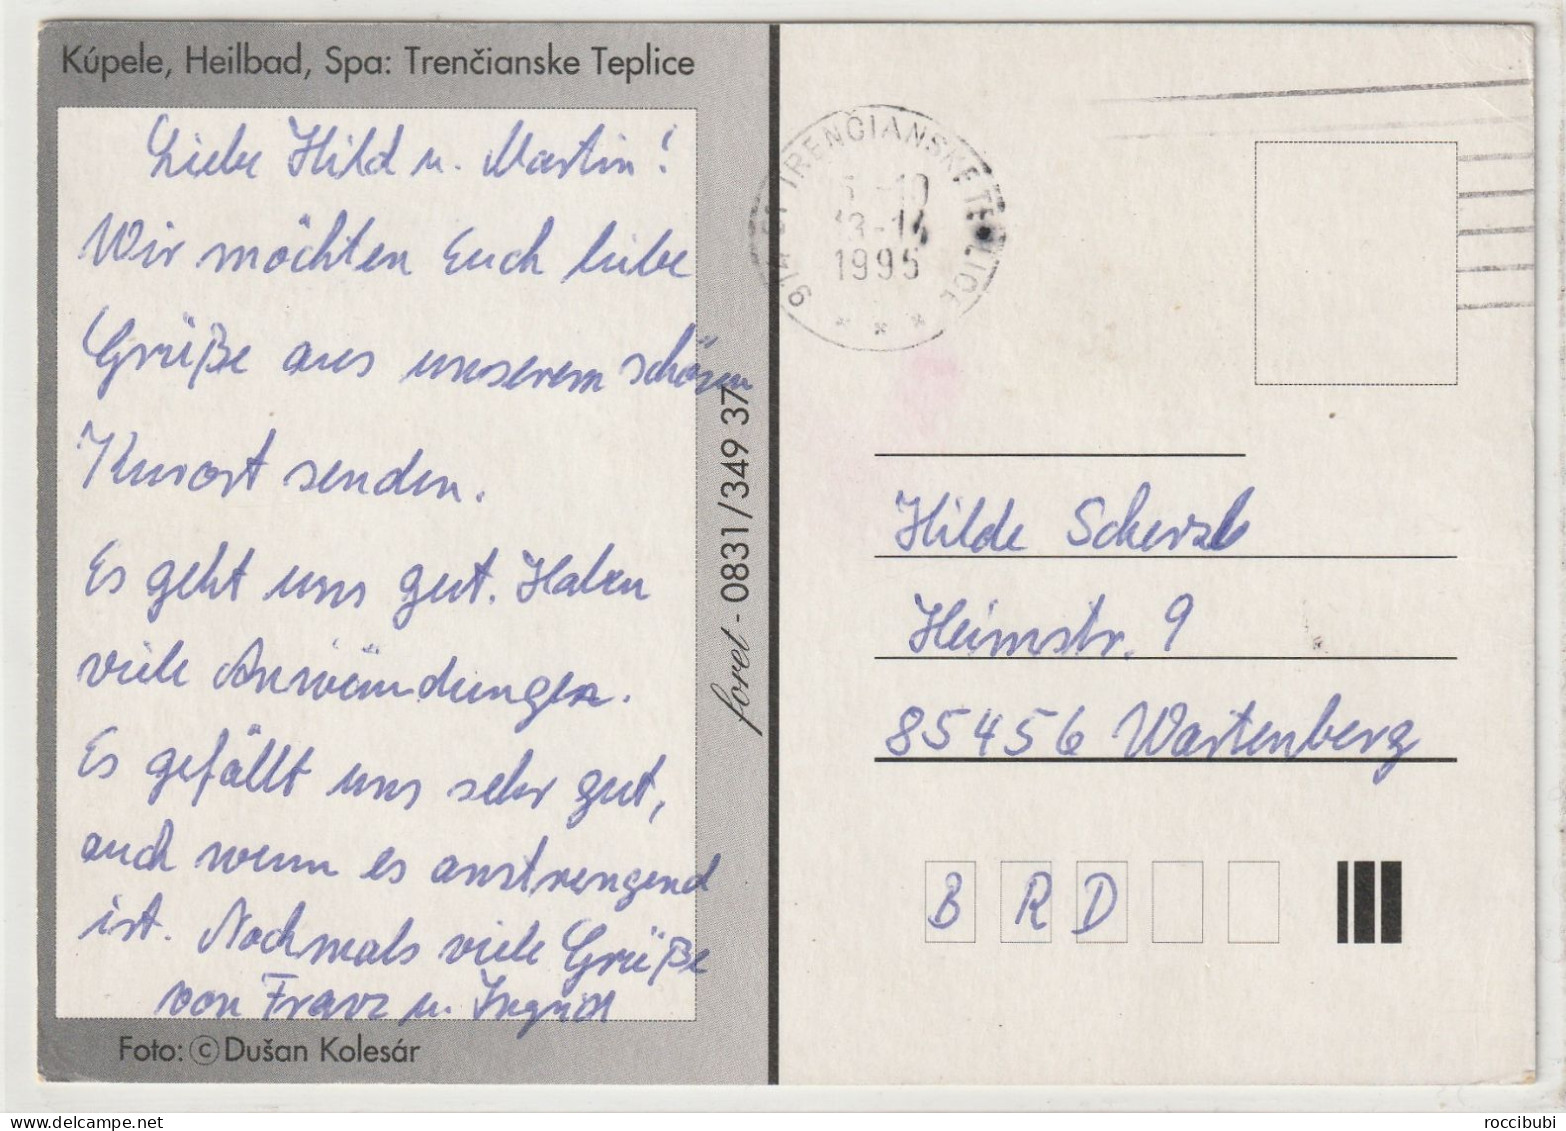 Kúpele, Heilbad, Spa: Trenčianske Teplice
Liebe Hild u. Martin!
Wir möchten Euch liebe
Grüße aus unserem schönen
Kurort senden.
Es geht uns gut. Haben
viele Anwändungen.
Es gefällt uns sehr gut,
auch wenn es anstrengend
ist. Nochmals viele Grüße
von Franz u. Ingrid
Foto: © Dušan Kolesár
foret - 0831/349 37
TRENČIANSKE TEPLICE
-10
13-14
1995
Hilde
Heimstr. 9
85456 Wartenberg
B R D
roccibubi